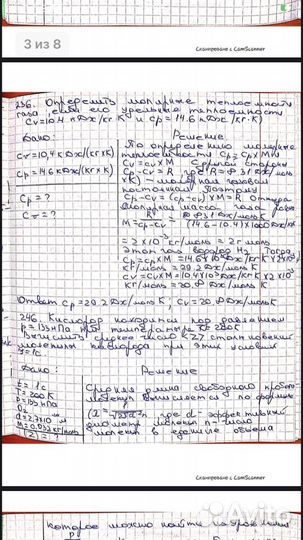 Сканировано с CamScanner
3 из 8
236. Определить молярные теплоемкости
газа, если его удельные теплоемкости
Cv=10.4 кДж/кг·К и Cp=14.6 кДж/кг·К)
Дано:
Cv=10,4 кДж/(кг·К)
Cp=14.6 кДж/(кг·К)
Cp = ?
Cv = ?
Решение
По определению молярные
теплоемкости Cp=Cp×M и
Cv=Cv×M С другой стороны
Cp-Cv=R где R=8.31 Дж/моль
×К) - молярная газовая
постоянная Поэтому
Cp-Cv=(cp-cv)×M=R Откуда
молярная масса газа равна
M=R/cp-cv= 8.31 Дж/моль К/(14.6-10.4)×1000 Дж/кг К
=2×10⁻³ кг/моль = 2 г/моль
Этот газ водород H₂ Тогда
Cp=cp×M=14.6×10³ Дж/кг К×2×10⁻³
кг/моль=29.2 Дж/моль К
Cv=cv×M=10.4×10³ Дж/кг К×2×10⁻³
кг/моль=20.8 Дж/моль К
Ответ Cp=29.2 Дж/моль К; Cv=20,8 Дж/моль К
246. Кислород находится под давлением
p=133 нПа при температуре T=200K
Вычислить среднее число <Z> столкновений
молекулы кислорода при этих условиях
t=1c
Дано:
t=1c
T=200K
p=133 нПа
O₂
M=0.032 кг/моль
<Z>=?
Решение
Средняя длина свободного пробега
молекул вычисляется по формуле
где d- эффективный
диаметр молекул n- число
молекул в единице объема
Сканировано с CamScanner
которое можно найти из уравнения
Avito